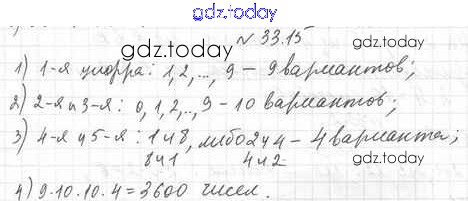 gdz.today
№ 33.15
gdz.today
1) 1-я цифра: 1,2,.., 9 - 9 вариантов;
2) 2-я и 3-я: 0,1,2,..,9 - 10 вариантов;
3) 4-я и 5-я: 1 и 8, либо 2 и 4 - 4 варианта;
8 и 1 4 и 2
4) 9·10·10·4=3600 чисел.
gdz.today